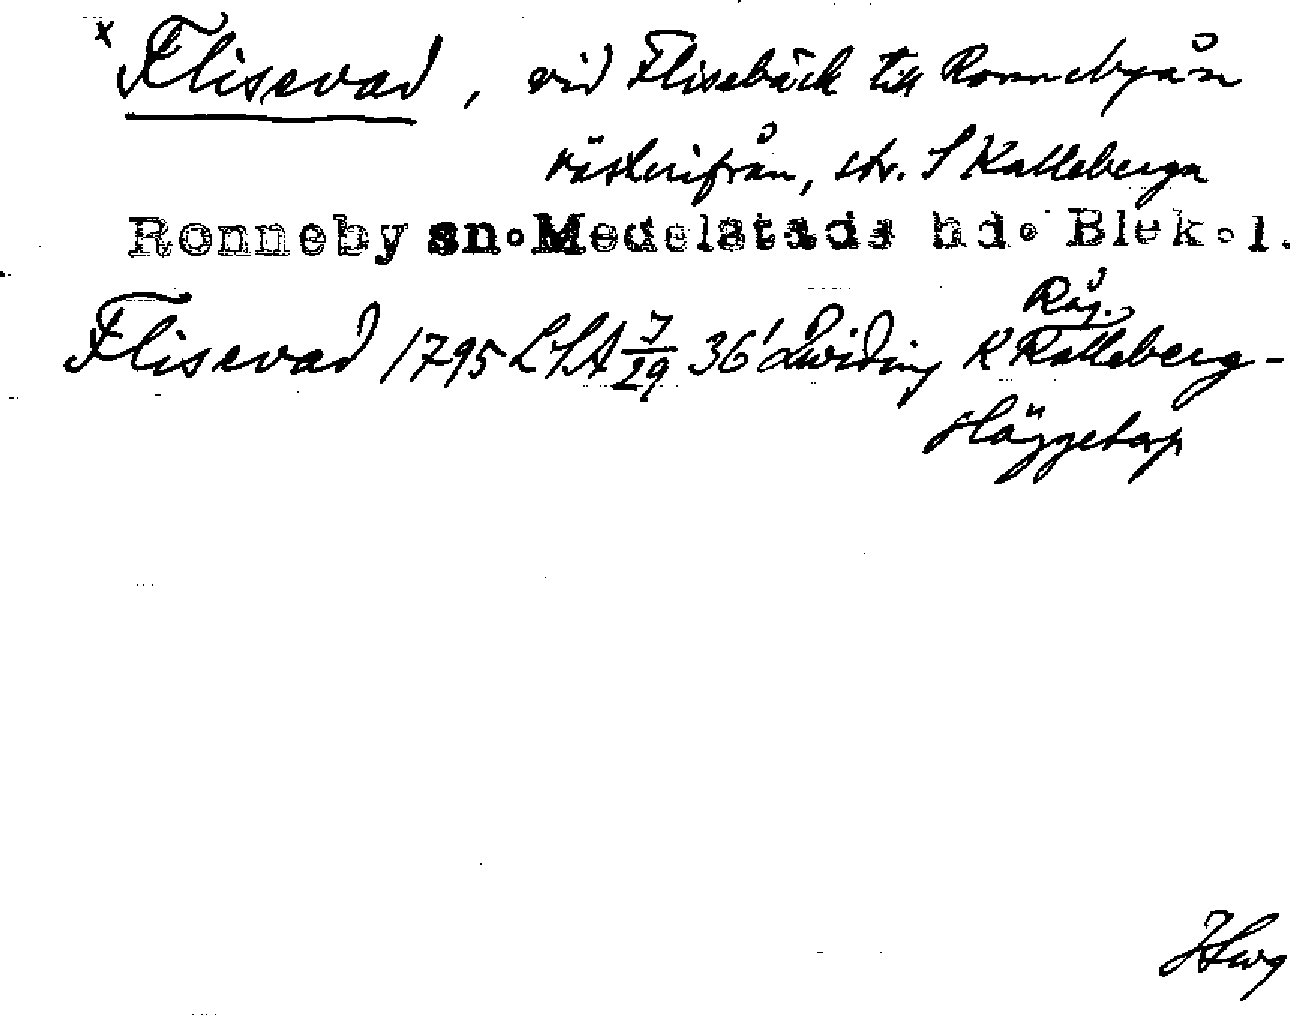 x Flisevad, vid Flisebäck till Ronnebyån
västerifrån, str. S Kalleberga
Ronneby sn. Medelstads hd. Blek. l.
Råg.
Flisevad 1795 LSA 7/29 36' K Kalleberg-
Häggetorp